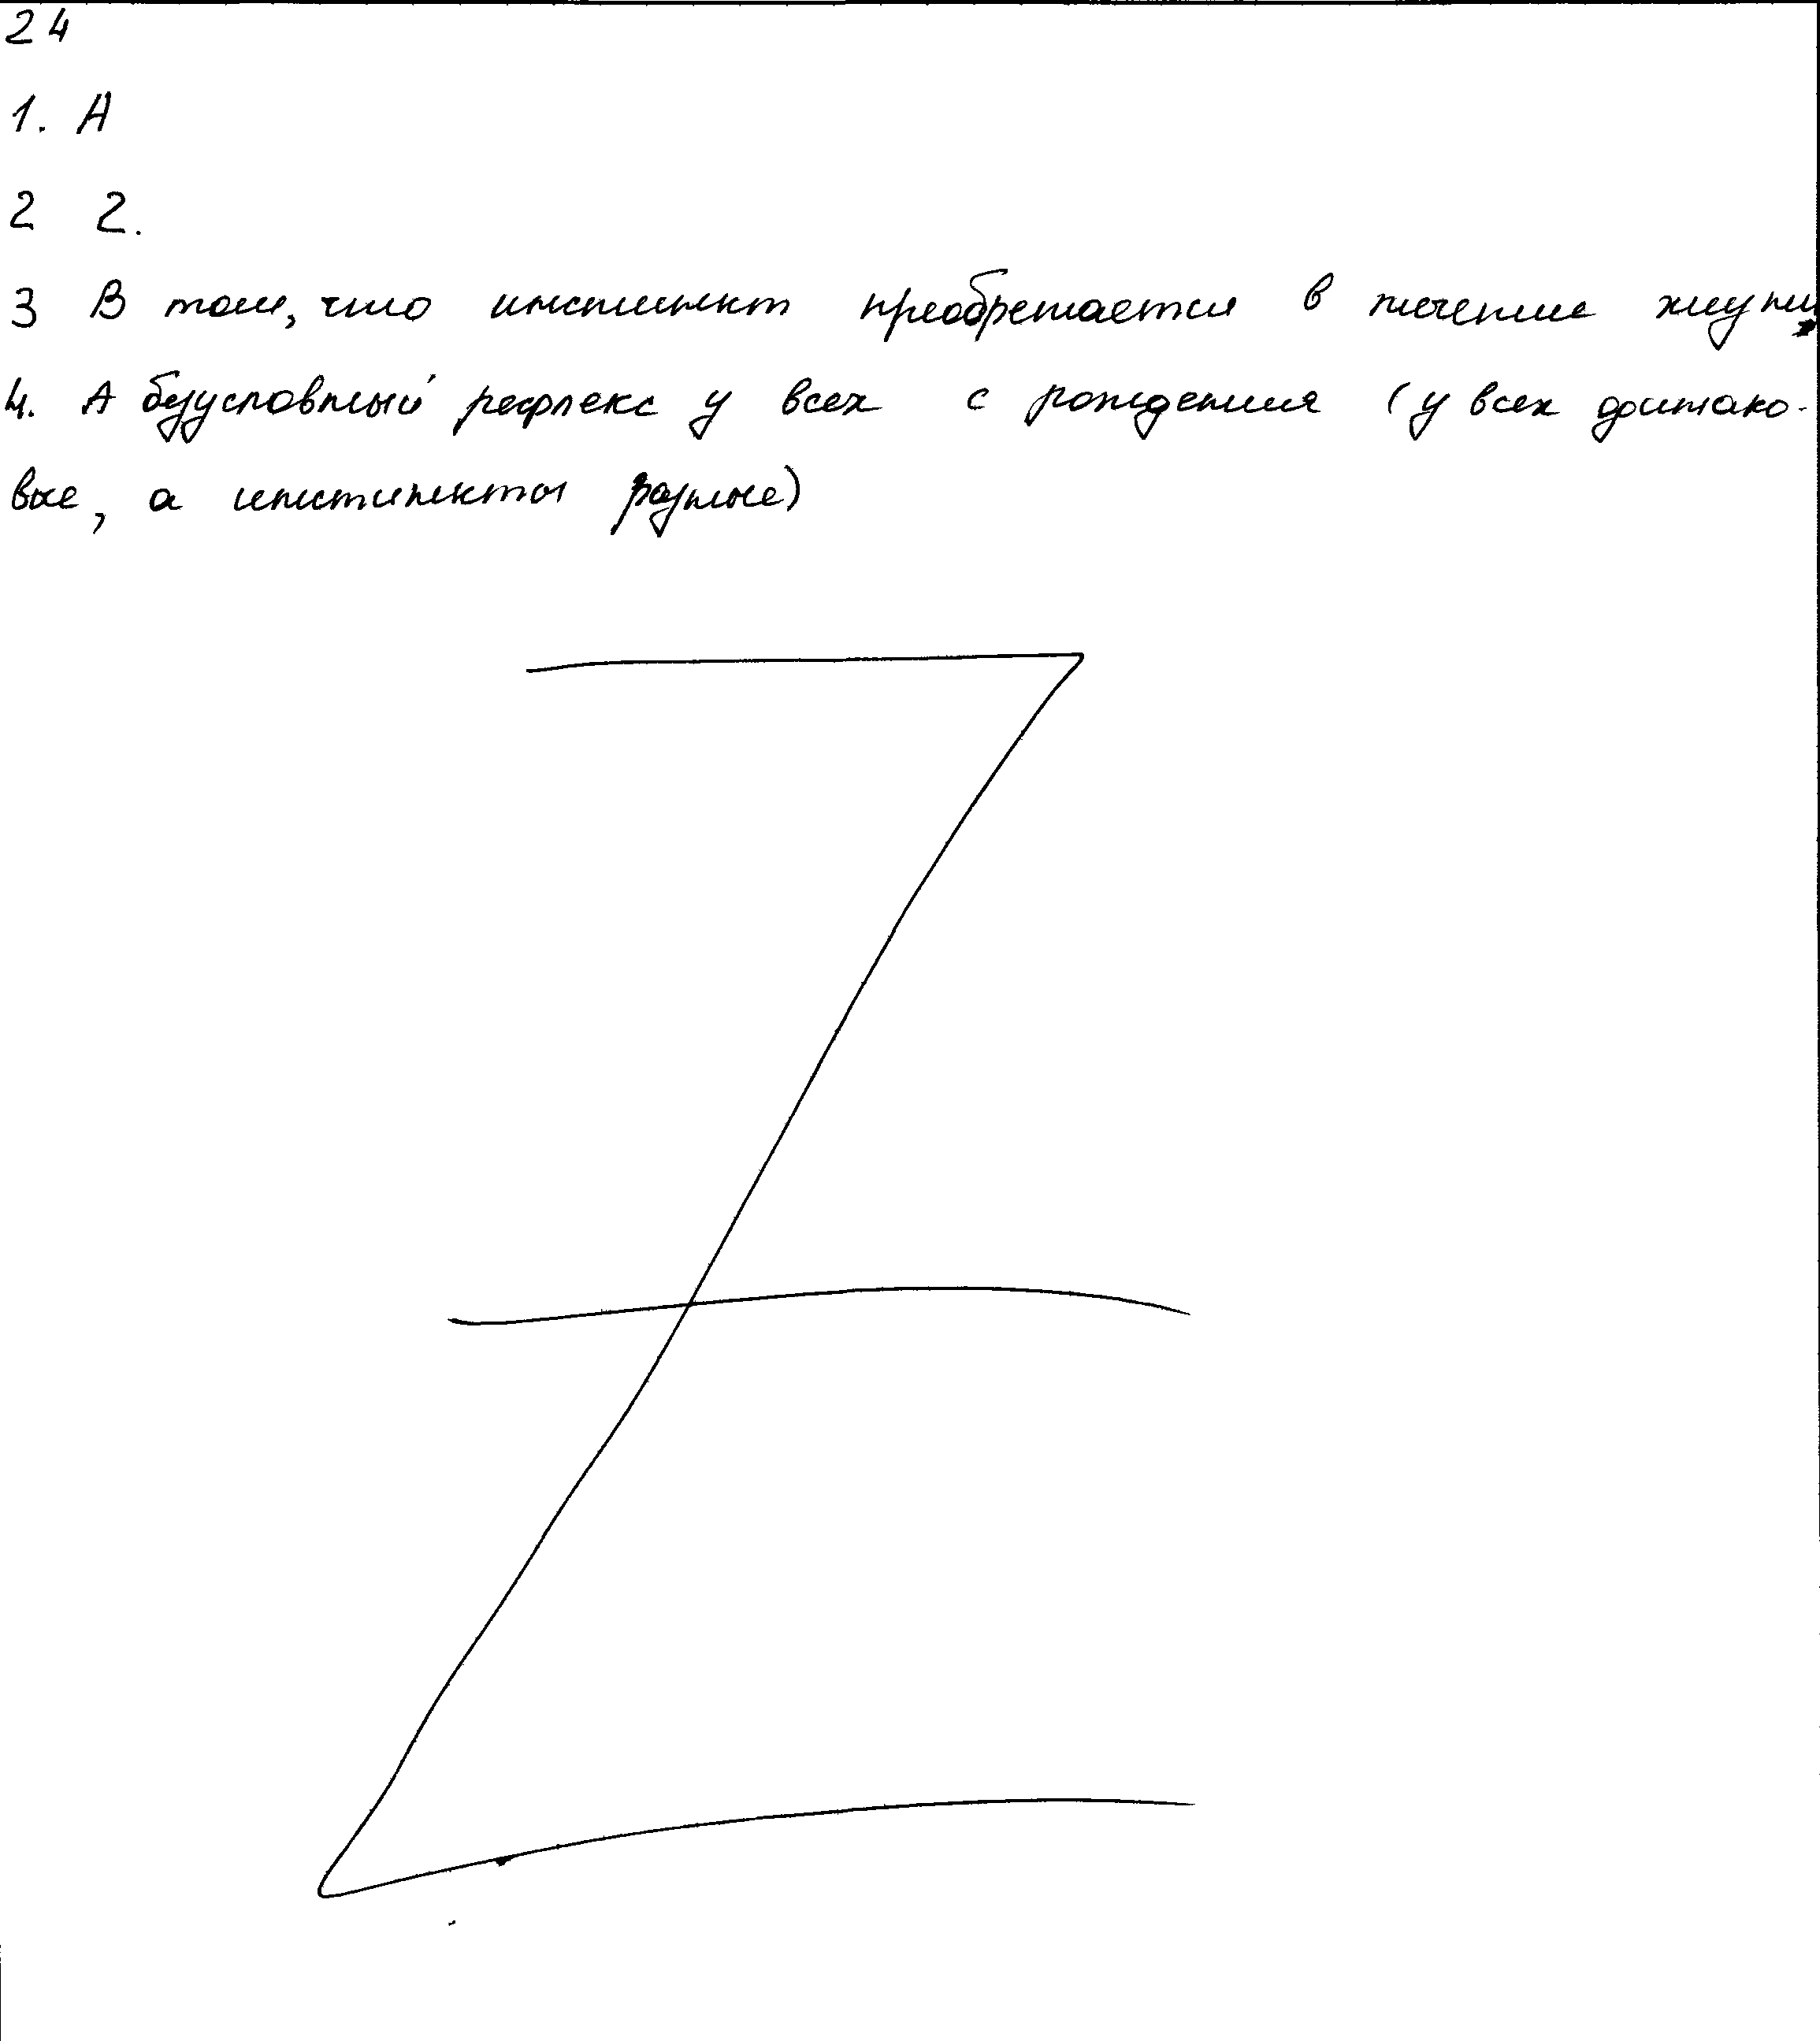 24
1. А
2 2.
3 В том, что инстинкт преобретается в течение жизни
4. А безусловный рефлекс у всех с рождения (у всех одинако-
вые, а инстинкты разные)